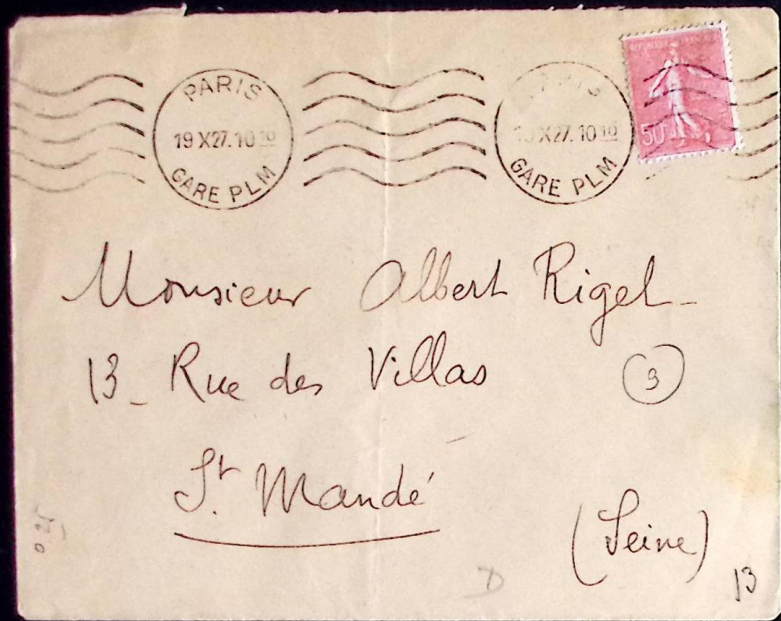 PARIS
19 X27. 10 10
GARE PLM
X27. 10 10
GARE PLM
50
Monsieur Albert Rigel
13 - Rue des Villas
St. Mandé
(Seine)
13